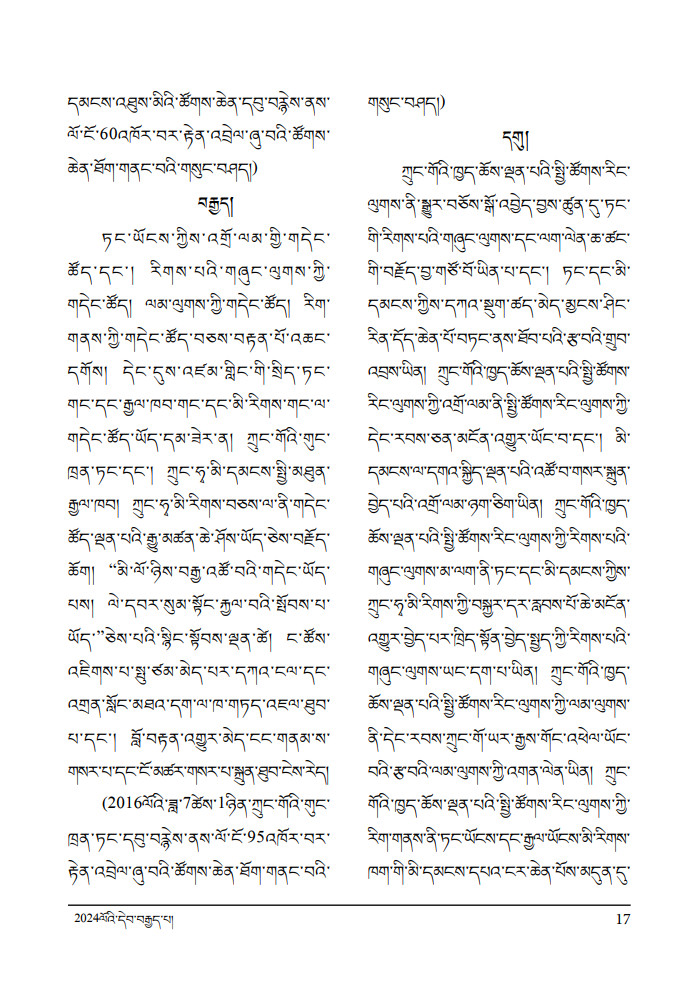 དམངས་འཐུས་མིའི་ཚོགས་ཆེན་དབུ་བརྙེས་ནས་
ལོ་ངོ་60འཁོར་བར་རྟེན་འབྲེལ་ཞུ་བའི་ཚོགས་
ཆེན་ཐོག་གནང་བའི་གསུང་བཤད།)
བརྒྱད།
ཏང་ཡོངས་ཀྱིས་འགྲོ་ལམ་གྱི་གདེང་
ཚོད་དང་། རིགས་པའི་གཞུང་ལུགས་ཀྱི་
གདེང་ཚོད། ལམ་ལུགས་ཀྱི་གདེང་ཚོད། རིག་
གནས་ཀྱི་གདེང་ཚོད་བཅས་བརྟན་པོ་འཆང་
དགོས། དེང་དུས་འཛམ་གླིང་གི་སྲིད་ཏང་
གང་དང་རྒྱལ་ཁབ་གང་དང་མི་རིགས་གང་ལ་
གདེང་ཚོད་ཡོད་དམ་ཟེར་ན། ཀྲུང་གོའི་གུང་
ཁྲན་ཏང་དང་། ཀྲུང་ཧྭ་མི་དམངས་སྤྱི་མཐུན་
རྒྱལ་ཁབ། ཀྲུང་ཧྭ་མི་རིགས་བཅས་ལ་ནི་གདེང་
ཚོད་ལྡན་པའི་རྒྱུ་མཚན་ཆེ་ཤོས་ཡོད་ཅེས་བརྗོད་
ཆོག། “མི་ལོ་ཉིས་བརྒྱ་འཚོ་བའི་གདེང་ཡོད་
པས། ལེ་དབར་སུམ་སྟོང་རྒྱལ་བའི་སྤོབས་པ་
ཡོད་”ཅེས་པའི་སྙིང་སྟོབས་ལྡན་ཚེ། ང་ཚོས་
འཇིགས་པ་སྤུ་ཙམ་མེད་པར་དཀའ་ངལ་དང་
འགྲན་སློང་མཐའ་དག་ལ་ཁ་གཏད་འཇལ་ཐུབ་
པ་དང་། བློ་བརྟན་འགྱུར་མེད་ངང་གནམ་ས་
གསར་པ་དང་ངོ་མཚར་གསར་པ་སྐྲུན་ཐུབ་ངེས་རེད།
(2016ལོའི་ཟླ་7ཚེས་1ཉིན་ཀྲུང་གོའི་གུང་
ཁྲན་ཏང་དབུ་བརྙེས་ནས་ལོ་ངོ་95འཁོར་བར་
རྟེན་འབྲེལ་ཞུ་བའི་ཚོགས་ཆེན་ཐོག་གནང་བའི་
གསུང་བཤད།)
དགུ།
ཀྲུང་གོའི་ཁྱད་ཆོས་ལྡན་པའི་སྤྱི་ཚོགས་རིང་
ལུགས་ནི་སྒྱུར་བཅོས་སྒོ་འབྱེད་བྱས་ཚུན་དུ་ཏང་
གི་རིགས་པའི་གཞུང་ལུགས་དང་ལག་ལེན་ཆ་ཚང་
གི་བརྗོད་བྱ་གཙོ་བོ་ཡིན་པ་དང་། ཏང་དང་མི་
དམངས་ཀྱིས་དཀའ་སྡུག་ཚད་མེད་མྱངས་ཤིང་
རིན་དོད་ཆེན་པོ་བཏང་ནས་ཐོབ་པའི་རྩ་བའི་གྲུབ་
འབྲས་ཡིན། ཀྲུང་གོའི་ཁྱད་ཆོས་ལྡན་པའི་སྤྱི་ཚོགས་
རིང་ལུགས་ཀྱི་འགྲོ་ལམ་ནི་སྤྱི་ཚོགས་རིང་ལུགས་ཀྱི་
དེང་རབས་ཅན་མངོན་འགྱུར་ཡོང་བ་དང་། མི་
དམངས་ལ་དགའ་སྐྱིད་ལྡན་པའི་འཚོ་བ་གསར་སྐྲུན་
བྱེད་པའི་འགྲོ་ལམ་ཉག་ཅིག་ཡིན། ཀྲུང་གོའི་ཁྱད་
ཆོས་ལྡན་པའི་སྤྱི་ཚོགས་རིང་ལུགས་ཀྱི་རིགས་པའི་
གཞུང་ལུགས་མ་ལག་ནི་ཏང་དང་མི་དམངས་ཀྱིས་
ཀྲུང་ཧྭ་མི་རིགས་ཀྱི་བསྐྱར་དར་རླབས་པོ་ཆེ་མངོན་
འགྱུར་བྱེད་པར་ཁྲིད་སྟོན་བྱེད་སྤྱད་ཀྱི་རིགས་པའི་
གཞུང་ལུགས་ཡང་དག་པ་ཡིན། ཀྲུང་གོའི་ཁྱད་
ཆོས་ལྡན་པའི་སྤྱི་ཚོགས་རིང་ལུགས་ཀྱི་ལམ་ལུགས་
ནི་དེང་རབས་ཀྲུང་གོ་ཡར་རྒྱས་གོང་འཕེལ་ཡོང་
བའི་རྩ་བའི་ལམ་ལུགས་ཀྱི་འགན་ལེན་ཡིན། ཀྲུང་
གོའི་ཁྱད་ཆོས་ལྡན་པའི་སྤྱི་ཚོགས་རིང་ལུགས་ཀྱི་
རིག་གནས་ནི་ཏང་ཡོངས་དང་རྒྱལ་ཡོངས་མི་རིགས་
ཁག་གི་མི་དམངས་དཔའ་ངར་ཆེན་པོས་མདུན་དུ་
2024ལོའི་དེབ་བརྒྱད་པ།
17